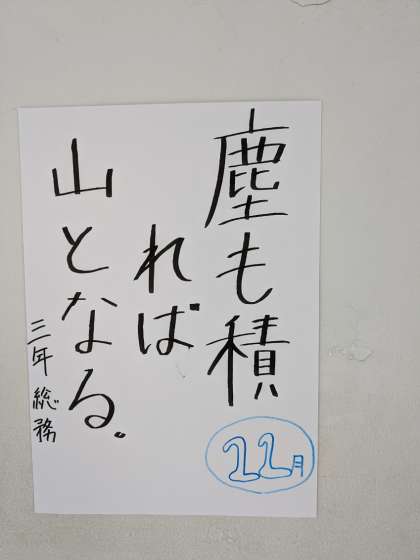 塵も積
れば
山となる。
三年総務
11月